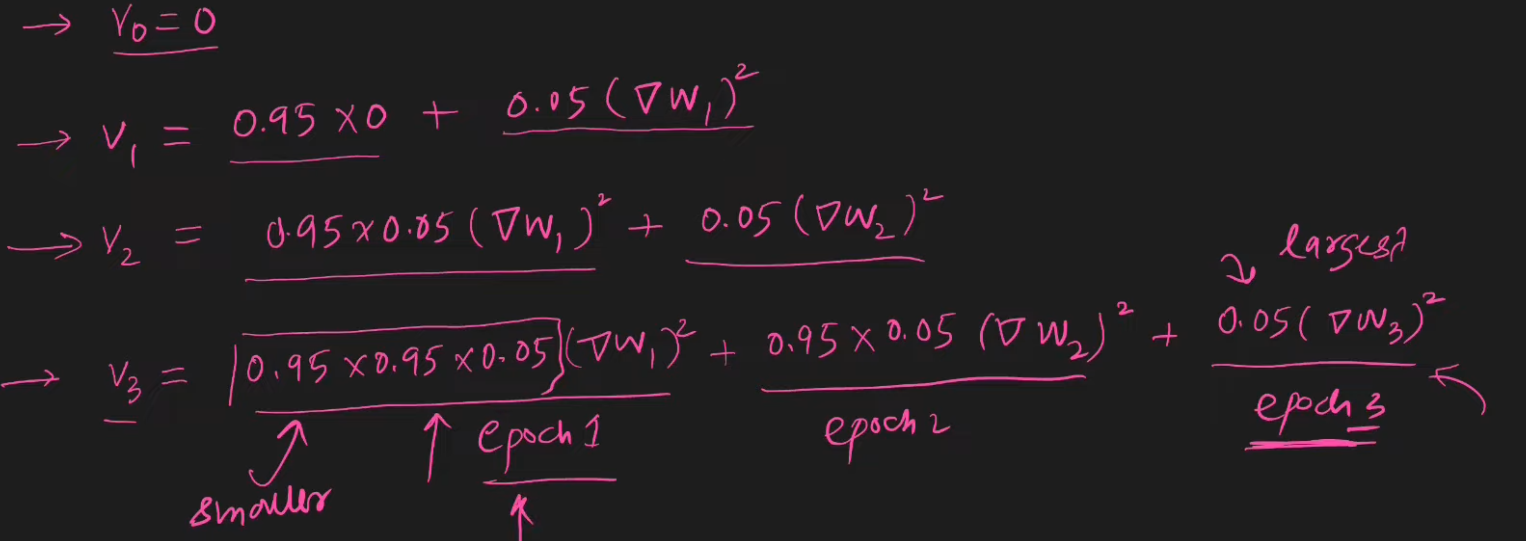 → V₀ = 0
→ V₁ = 0.95 × 0 + 0.05 (∇W₁)²
→ V₂ = 0.95 × 0.05 (∇W₁)² + 0.05 (∇W₂)²
largest
→ V₃ = 0.95 × 0.95 × 0.05 (∇W₁)² + 0.95 × 0.05 (∇W₂)² + 0.05 (∇W₃)²
epoch 1 epoch 2 epoch 3
smaller